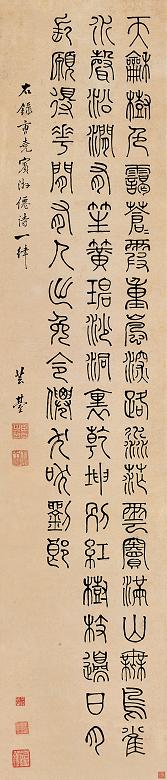 天龢樹色靄蒼〻霞重嵐深路渺茫雲竇滿山無鳥雀
水聲沿澗有笙簧碧沙洞裏乾坤別紅樹枝邊日月
長願得花間有人出免令僊犬吠劉郎
右錄曹堯賓游僊詩一律
芸臺